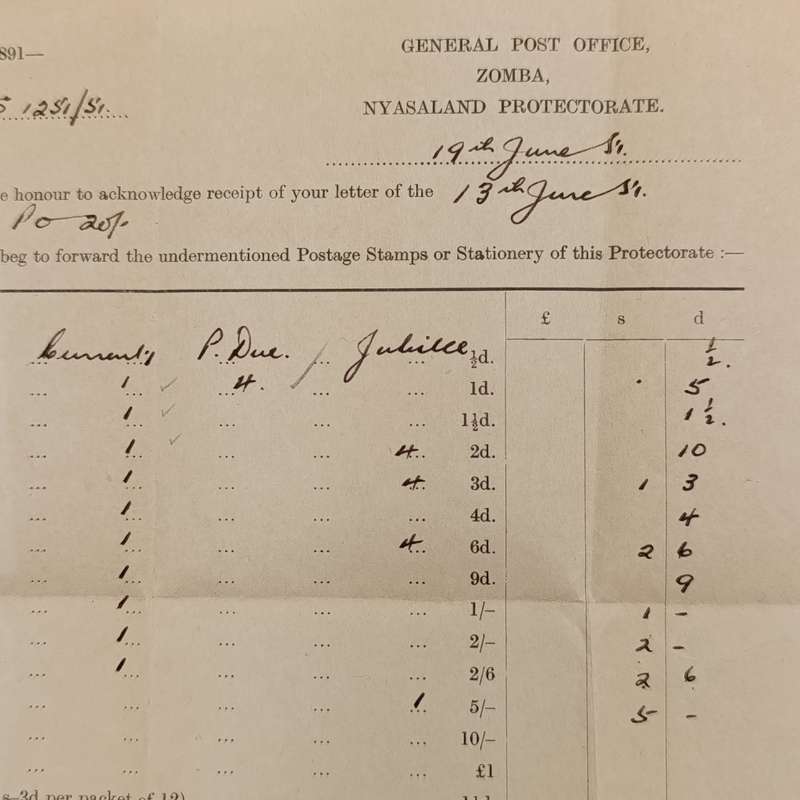 891—
GENERAL POST OFFICE,
ZOMBA,
NYASALAND PROTECTORATE.
1251/51.
19th June 51.
e honour to acknowledge receipt of your letter of the 13th June 51.
PO 20/-
beg to forward the undermentioned Postage Stamps or Stationery of this Protectorate :—
£ s d
Currently P. Due. Jubilee ½d. ½.
... 1... ...4. ... ... 1d. 5
... 1... ... ... ... 1½d. 1½.
... 1... ... ... 4.. 2d. 10
... 1... ... ... 4.. 3d. 1 3
... 1... ... ... ... 4d. 4
... 1... ... ... 4.. 6d. 2 6
... 1... ... ... ... 9d. 9
... 1... ... ... ... 1/– 1 –
... 1... ... ... ... 2/– 2 –
... 1... ... ... ... 2/6 2 6
... ... ... ... 1.. 5/– 5 –
... ... ... ... ... 10/–
... ... ... ... ... £1
s–3d per packet of 12)